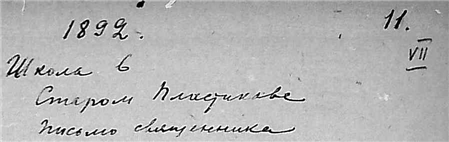 1892. 11.
VII
Школа в
Старом Пластикове
письмо священника